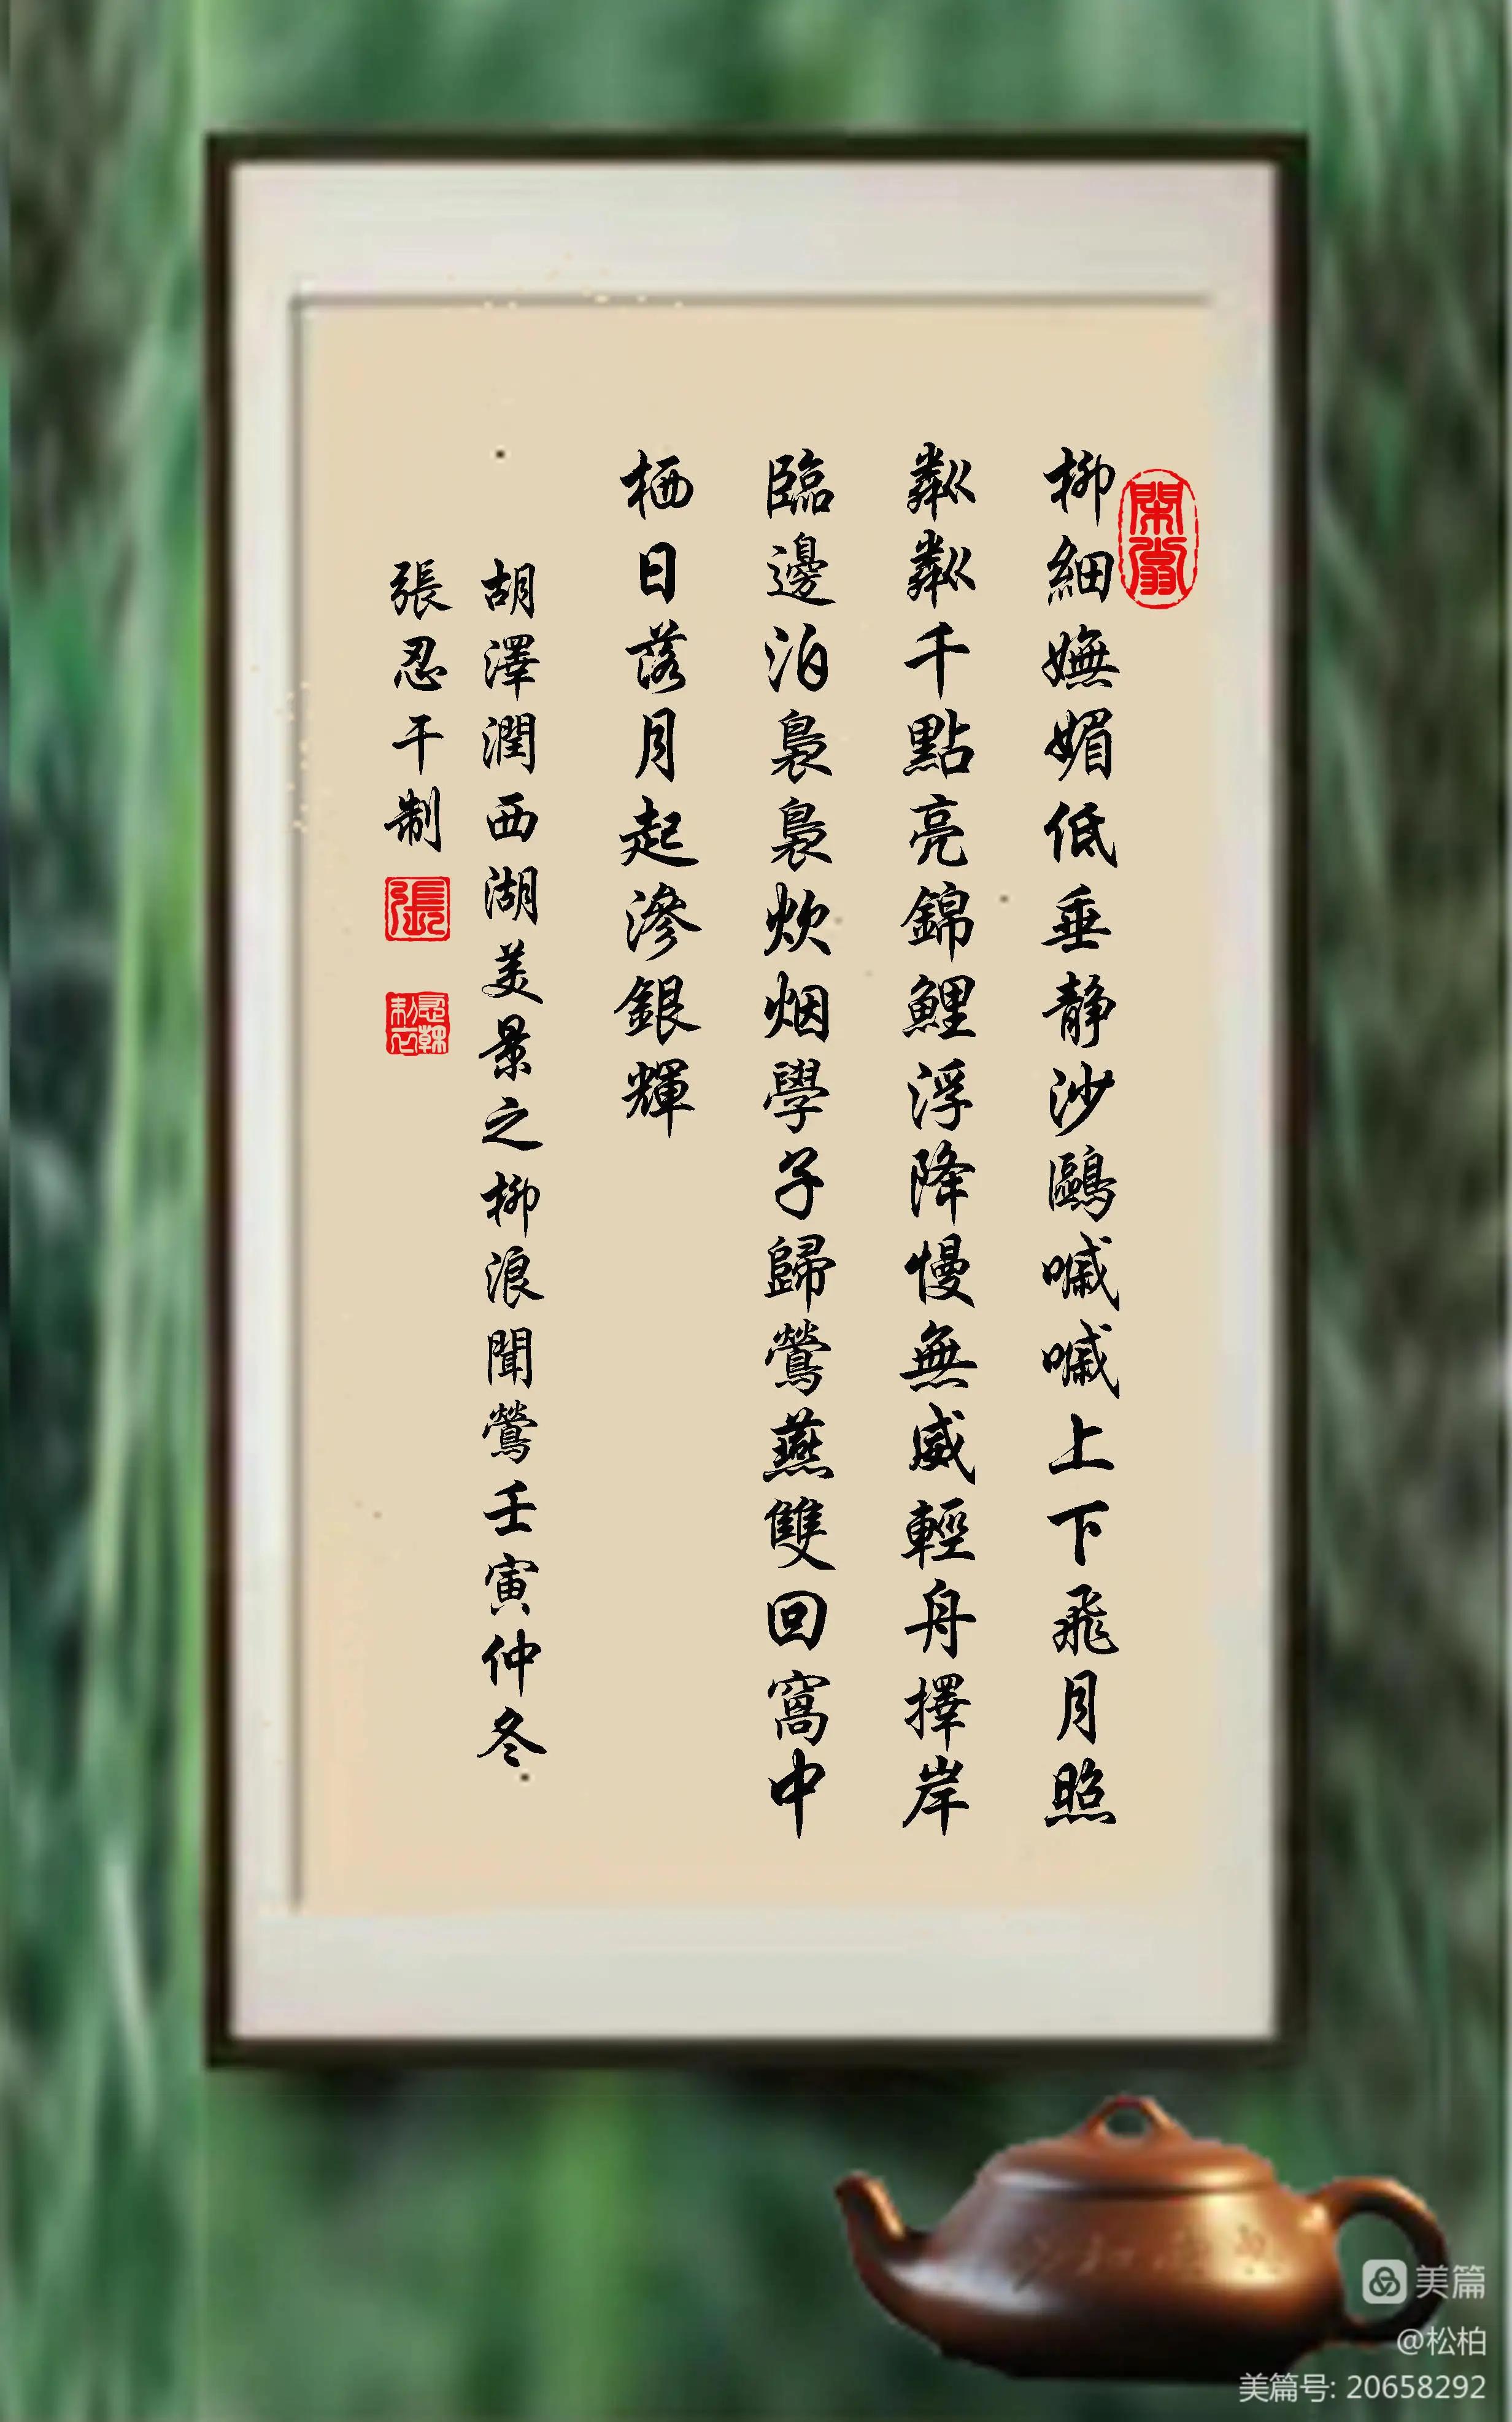 柳細嫵媚低垂靜沙鷗嘁嘁上下飛月照
粼粼千點亮錦鯉浮降慢無威輕舟擇岸
臨邊泊裊裊炊烟學子歸鶯燕雙回窩中
栖日落月起滲銀輝
胡澤潤西湖美景之柳浪聞鶯壬寅仲冬
張忍干制
張
美篇
@松柏
美篇号: 20658292